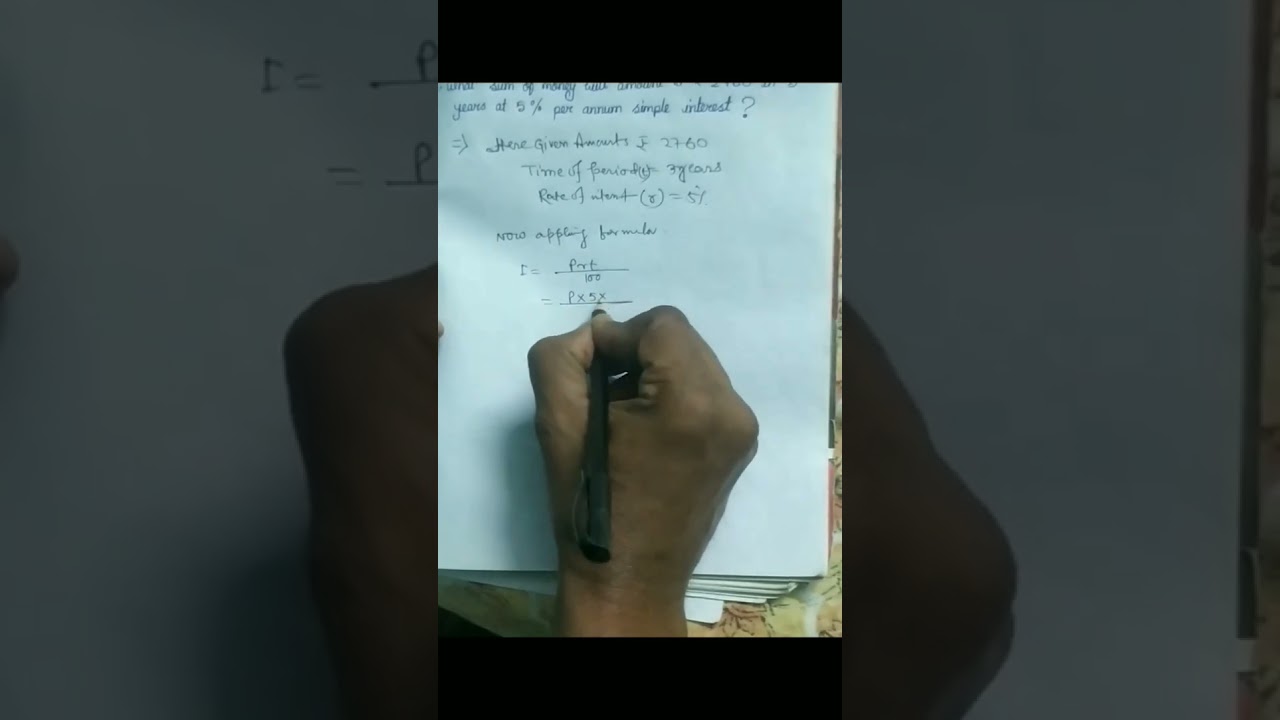 what sum of money will amount
years at 5% per annum simple interest ?
=> Here Given Amounts ₹ 2760
Time of period(t)= 3years
Rate of intent (r) = 5%
Now appling formula
I = Prt
100
= P×5×
I = P
= P